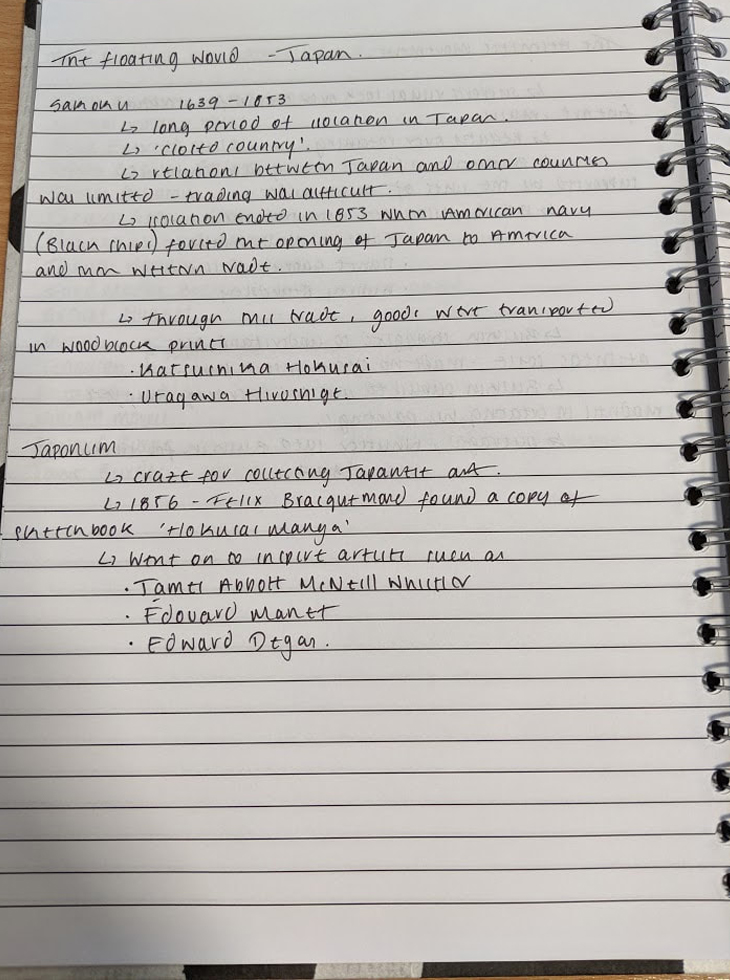 The floating world - Japan.
Sakoku 1639-1853
↳ long period of isolation in Japan.
↳ 'closed country'.
↳ relations between Japan and other countries
was limited - trading was difficult.
↳ isolation ended in 1853 when American navy
(Black ships) forced the opening of Japan to America
and then western trade.
↳ through this trade, goods were transported
in woodblock prints
· Katsushika Hokusai
· Utagawa Hiroshige.
Japonism
↳ craze for collecting Japanese art.
↳ 1856 - Felix Bracquemond found a copy of
sketchbook 'Hokusai Manga'
↳ Went on to inspire artists such as
· James Abbott McNeill Whistler
· Édouard Manet
· Edward Degas.